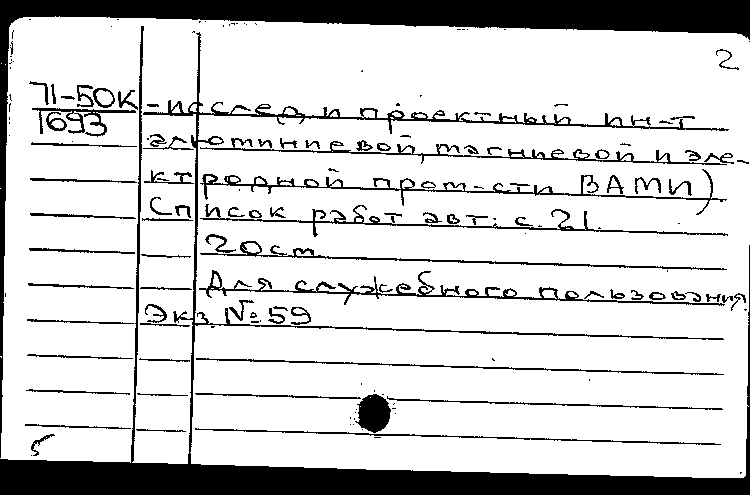 2
71-50К
1693
-исслед. и проектный ин-т
алюминиевой, магниевой и эле-
ктродной пром-сти ВАМИ)
Список работ авт.: с. 21.
20 см.
Для служебного пользования
Экз. № 59
5